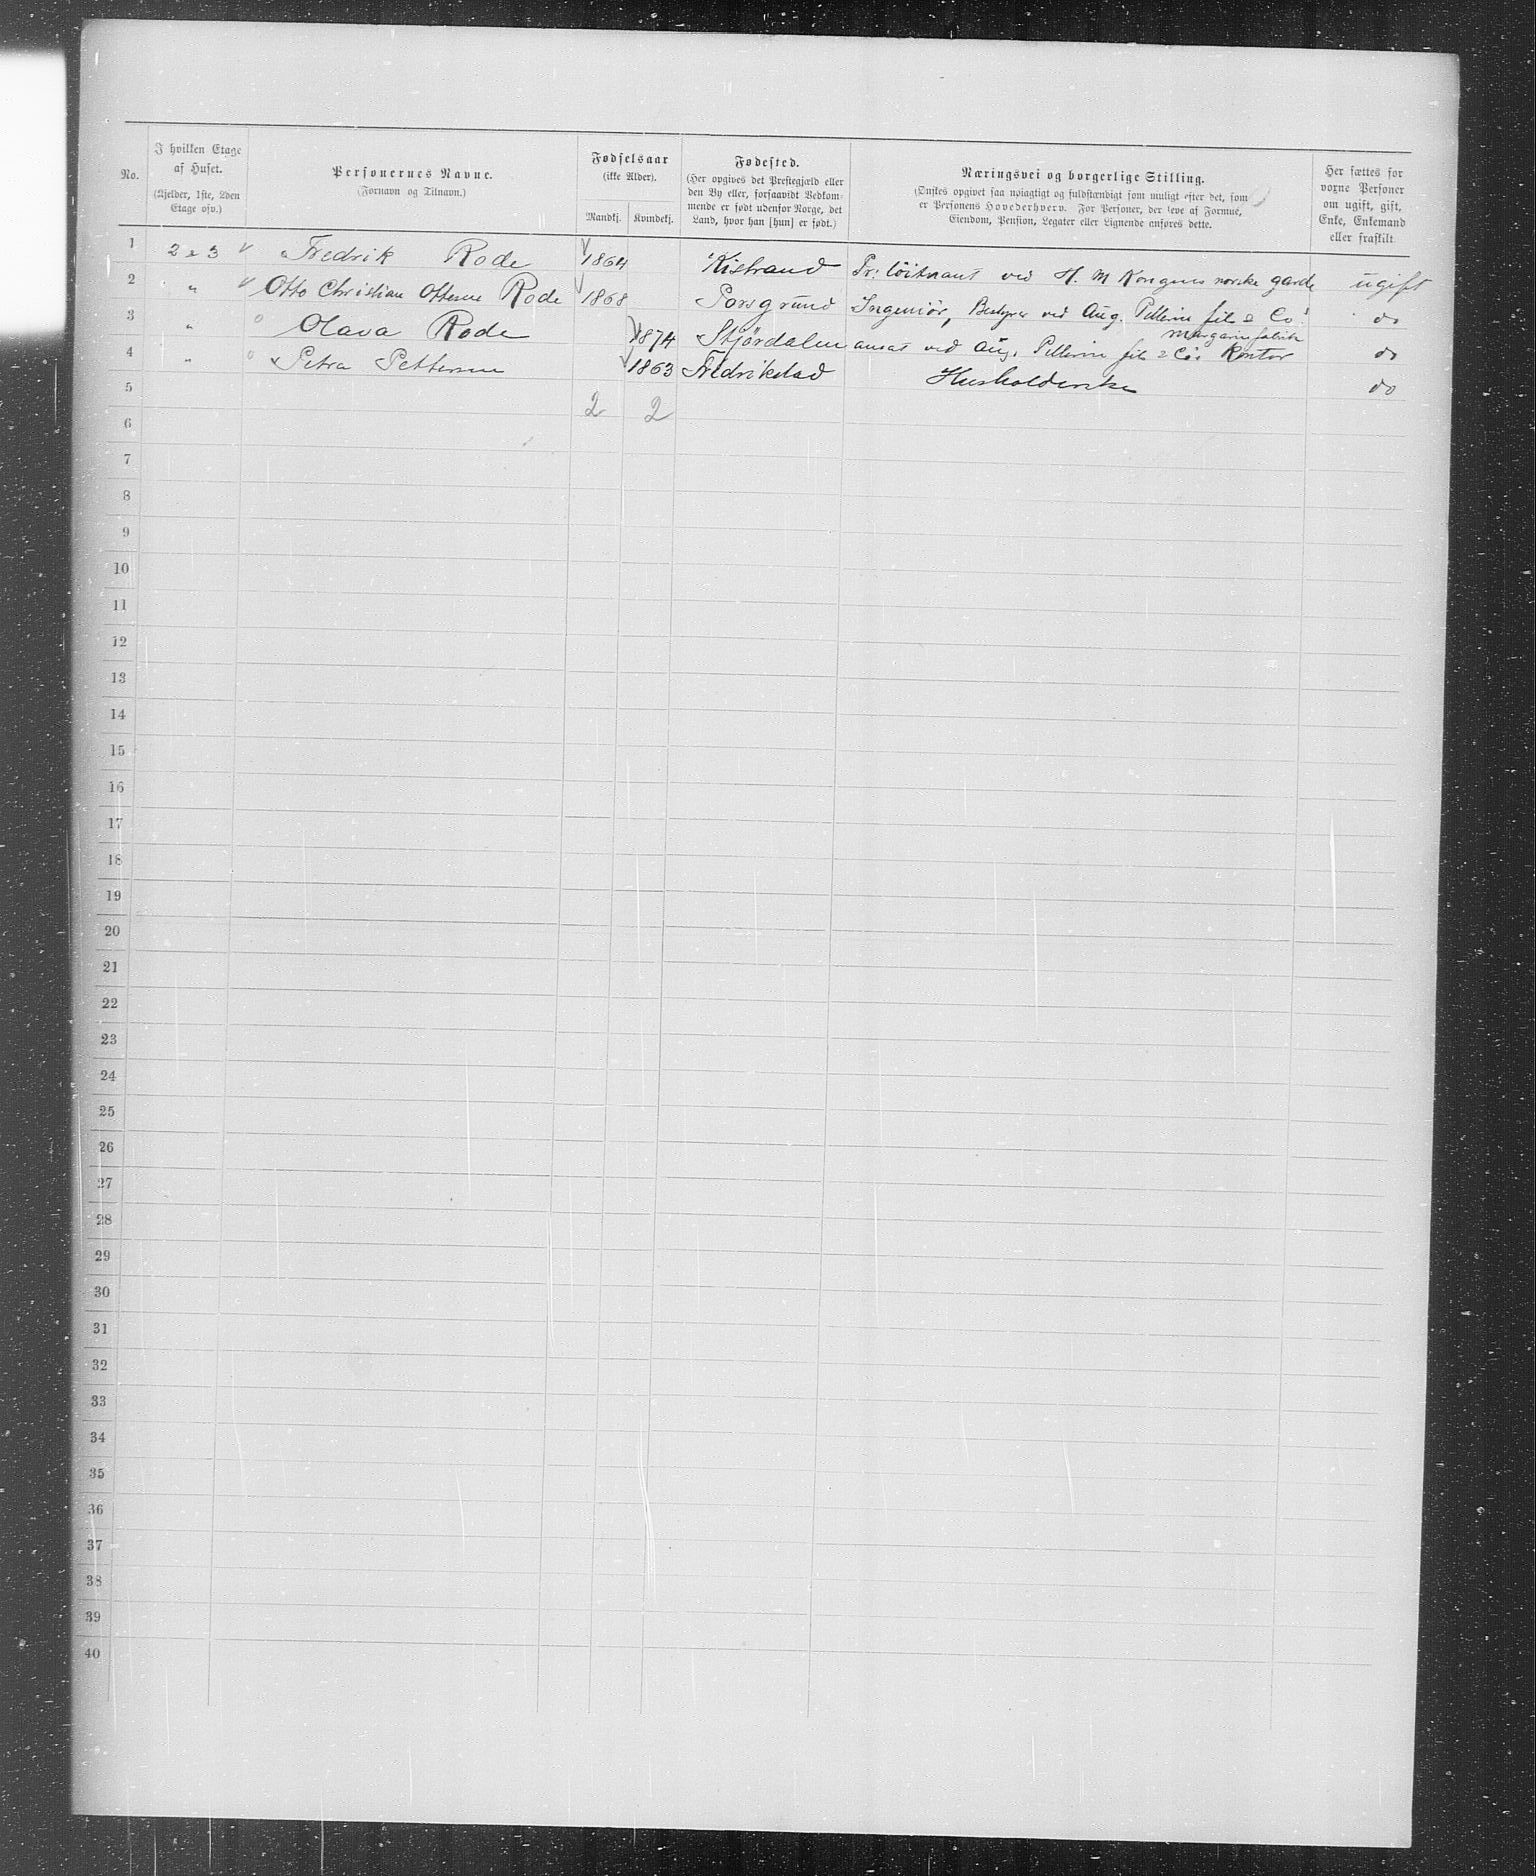 No.
I hvilken Etage af Huset.
(Kjelder, 1ste, 2den Etage osv.)
Personernes Navne.
(Fornavn og Tilnavn.)
Fødselsaar
(ikke Alder).
Mandkj. Kvindekj.
Fødested.
(Her opgives det Præstegjæld eller
den By eller, forsaavidt Vedkom-
mende er født udenfor Norge, det
Land, hvor han [hun] er født.)
Næringsvei og borgerlige Stilling.
(Ønskes opgivet saa nøiagtigt og fuldstændigt som muligt efter det, som
er Personens Hovederhverv. For Personer, der leve af Formue,
Eiendom, Pension, Legater eller Lignende anføres dette.
Her sættes for
voxne Personer
om ugift, gift,
Enke, Enkemand
eller fraskilt
1 2 & 3 Fredrik Rode 1864 Kistrand Pr: löitnant ved H. M Kongens norske garde ugift
2 " Otto Christian Ottersen Rode 1868 Porsgrund Ingeniör, Bestyrer ved Aug. Pellerin fils & Co: do
Margarinfabrik
3 " Olava Rode 1874 Stjørdalen ansat ved Aug. Pellerin fils & Co: Kontor do
4 " Petra Pettersen 1863 Fredrikstad Husholderske do
5 2 2
6
7
8
9
10
11
12
13
14
15
16
17
18
19
20
21
22
23
24
25
26
27
28
29
30
31
32
33
34
35
36
37
38
39
40